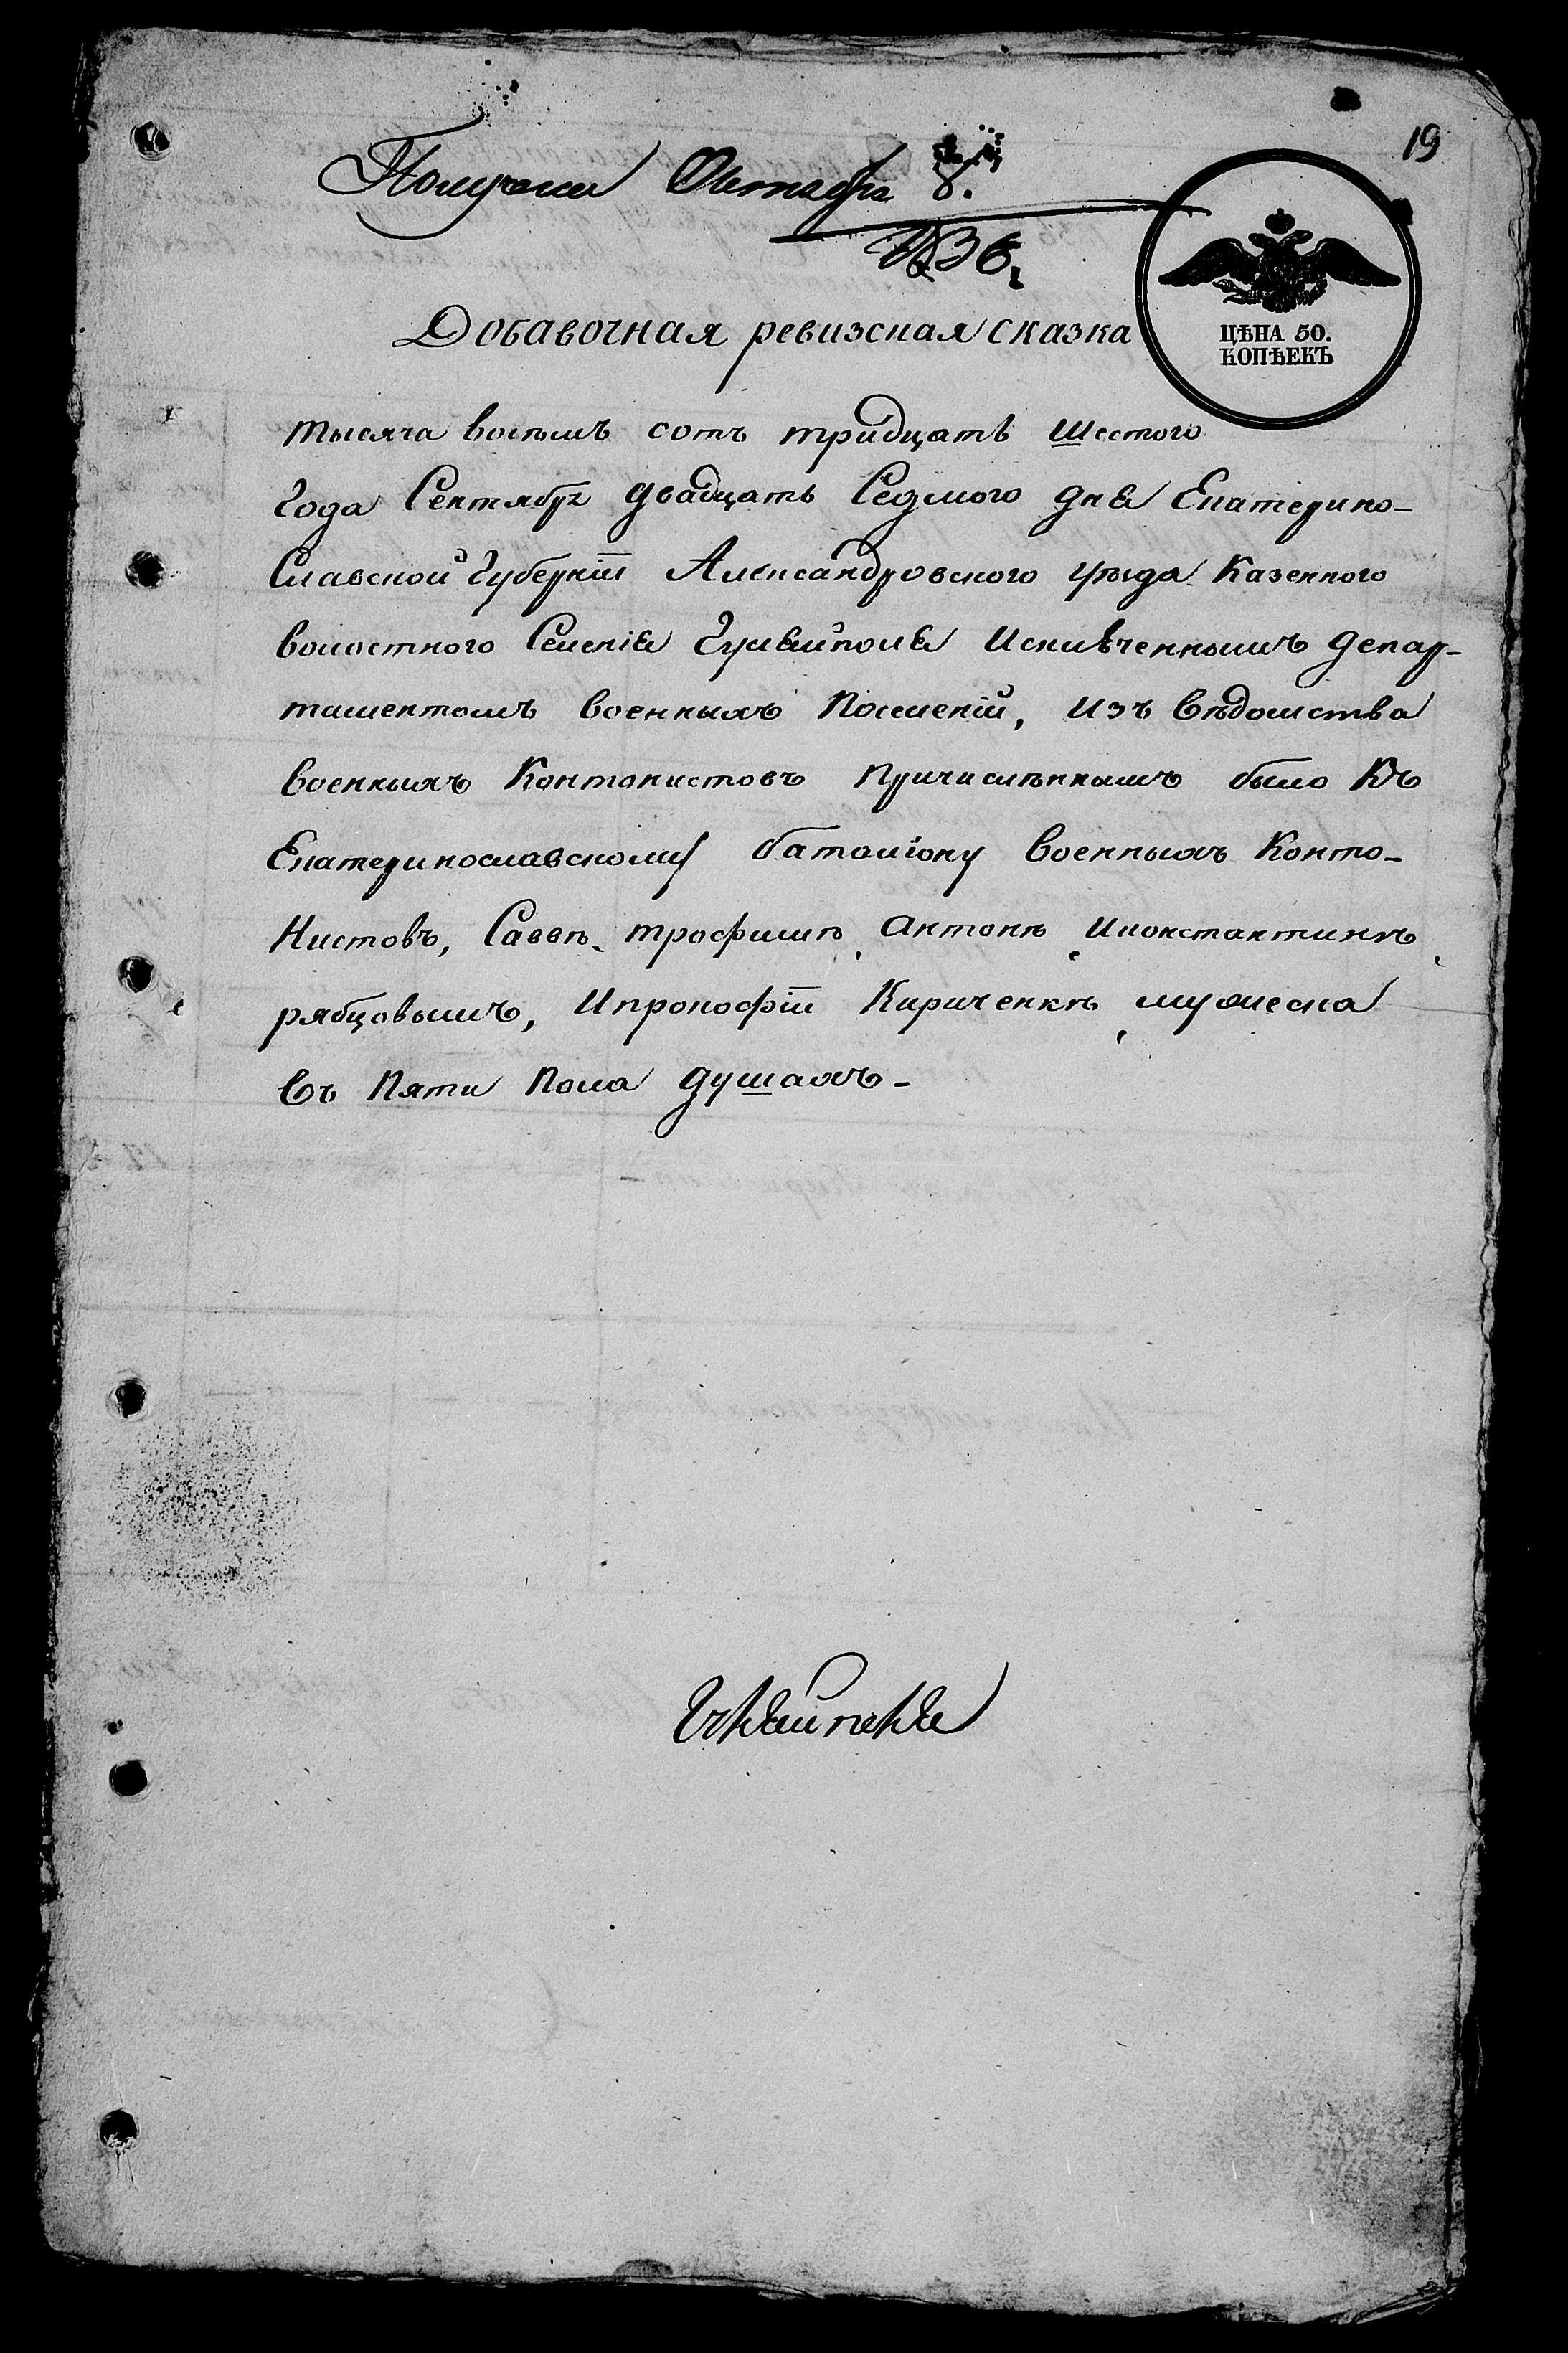 19
Получена Октября 8.
1836,
ЦѢНА 50.
КОПѢЕКЪ
Добавочная ревизская сказка
тысяча восемъ сотъ тридцать шестого
года Сентября двадцать Седмого дня Екатерино-
Славской губерніи Александровского уѣзда Казенного
волостного Селенія Гуляйполя Исключеннымъ депар-
таментомъ военныхъ Поселеній, изъ вѣдомства
военныхъ Контонистовъ причисленнымъ было Къ
Екатеринославскому баталіону военныхъ Конто-
Нистовъ, Саввѣ, трофимѣ, Антонѣ, Иконстантинѣ,
рябцовымъ, Ипрокофіи Кириченкѣ, мужеска
въ Пяти Пола душахъ-